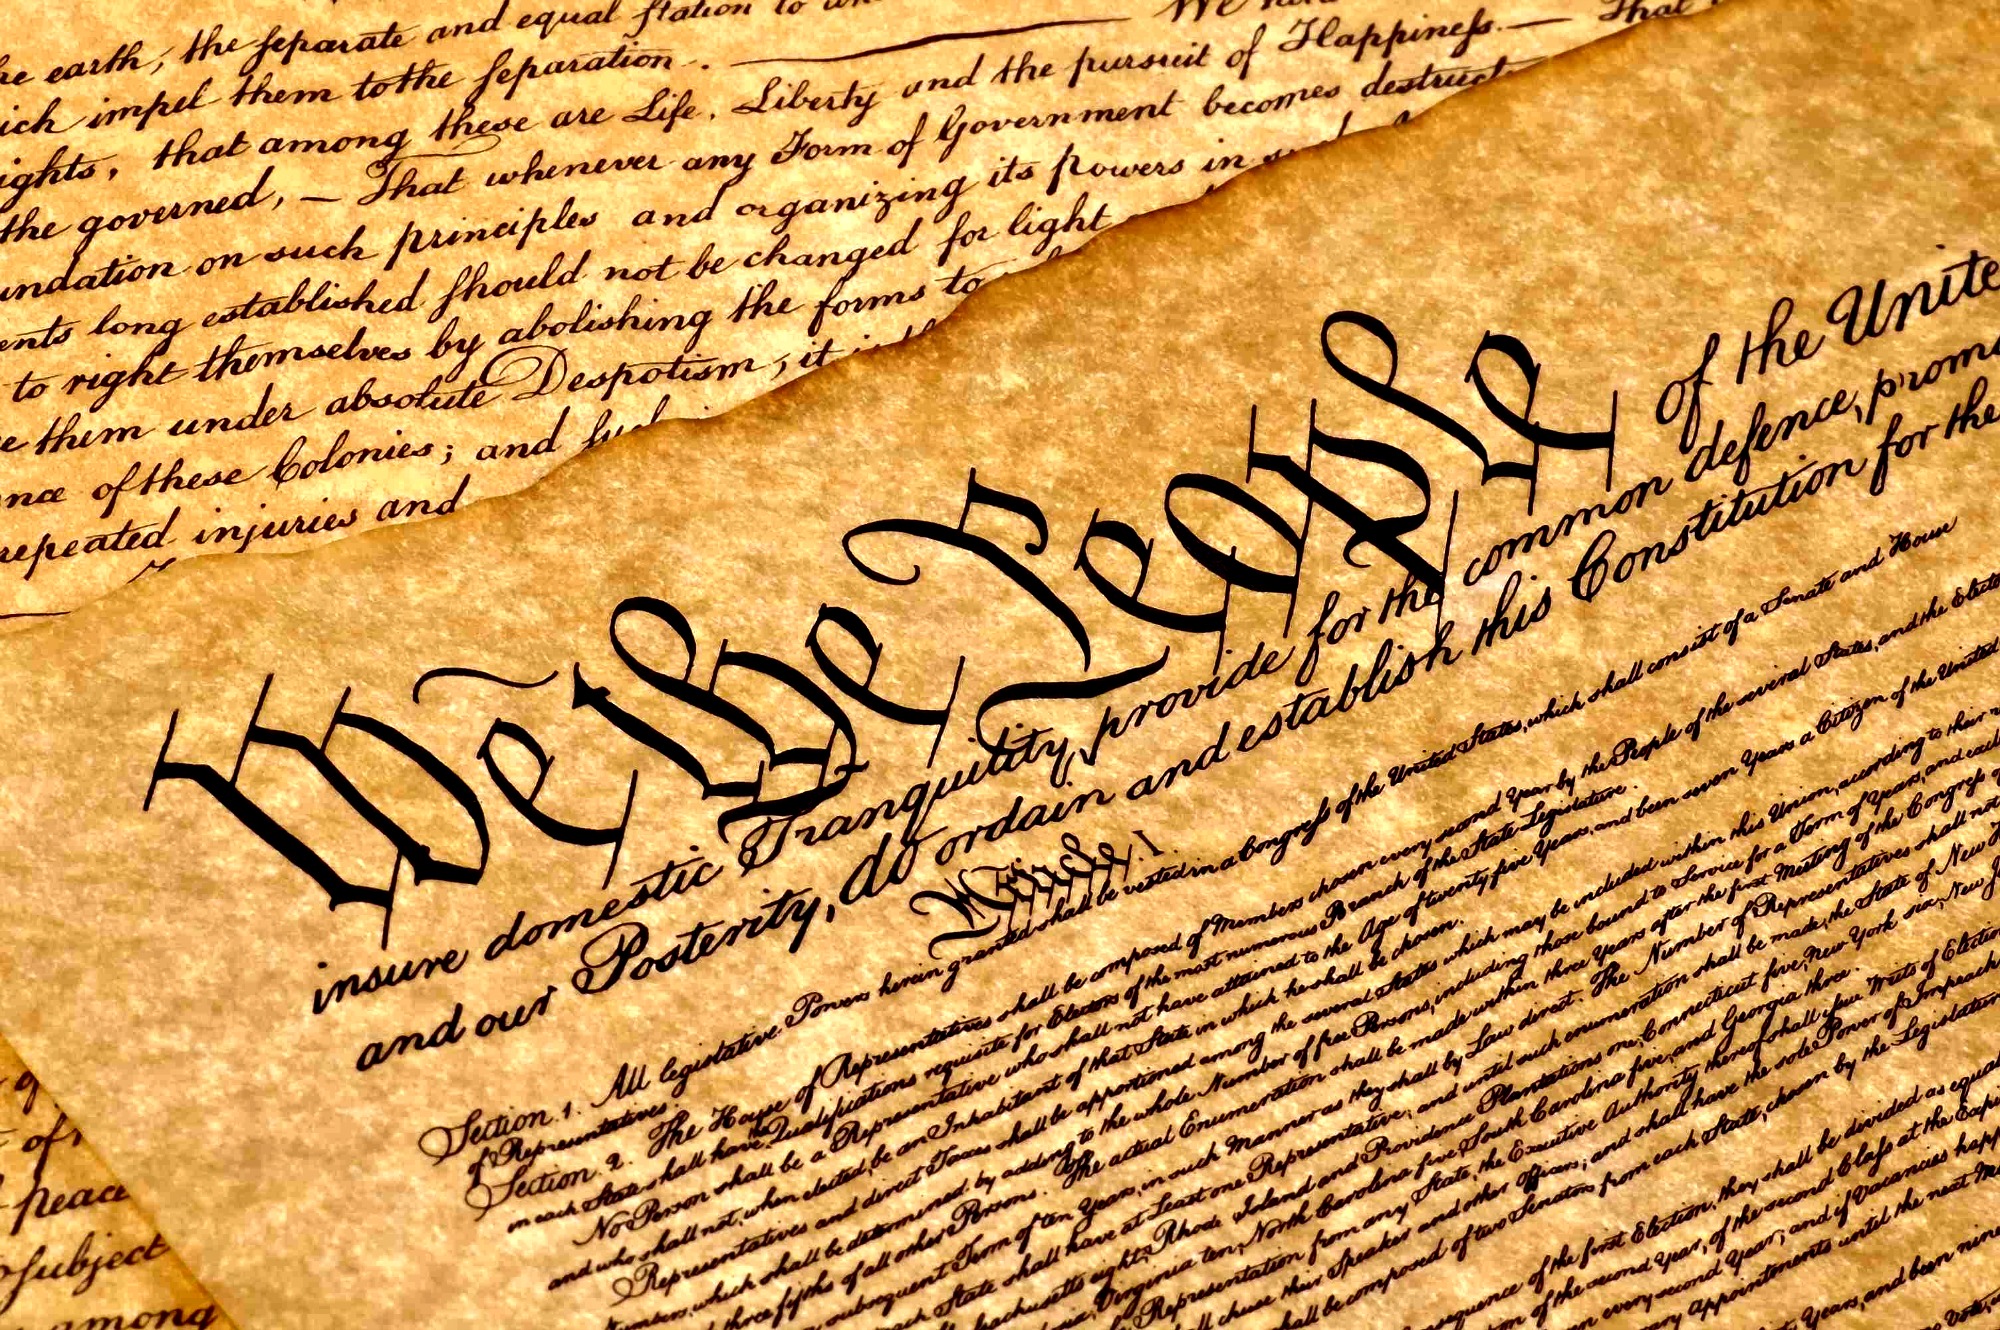 he earth, the separate and equal station to
We
That
ich impel them to the separation.
ights, that among these are Life, Liberty and the pursuit of Happiness.—
the governed, — That whenever any Form of Government becomes destruct
undation on such principles and organizing its powers in
ents long established should not be changed for light
to right themselves by abolishing the forms to
e them under absolute Despotism, it
ance of these Colonies; and such
repeated injuries and
We the People of the Unite
insure domestic Tranquility, provide for the common defence, promo
and our Posterity, do ordain and establish this Constitution for the
Article. I.
Section. 1. All legislative Powers herein granted shall be vested in a Congress of the United States, which shall consist of a Senate and House
of Representatives.
Section. 2. The House of Representatives shall be composed of Members chosen every second Year by the People of the several States, and the Elect
in each State shall have Qualifications requisite for Electors of the most numerous Branch of the State Legislature.
No Person shall be a Representative who shall not have attained to the Age of twenty five Years, and been seven Years a Citizen of the United
and who shall not, when elected, be an Inhabitant of that State in which he shall be chosen.
Representatives and direct Taxes shall be apportioned among the several States which may be included within this Union, according to their
Numbers, which shall be determined by adding to the whole Number of free Persons, including those bound to Service for a Term of Years, and
three fifths of all other Persons. The actual Enumeration shall be made within three Years after the first Meeting of the Congress
subsequent Term of ten Years, in such Manner as they shall by Law direct. The Number of Representatives shall not
each State shall have at Least one Representative; and until such enumeration shall be made, the State of New
eight, Rhode Island and Providence Plantations one, Connecticut five, New York six, New
Virginia ten, North Carolina five, South Carolina five, and Georgia three.
Representation from any State, the Executive Authority thereof shall issue Writs of Election
shall chuse their Speaker and other Officers; and shall have the sole Power of Impeach
shall be composed of two Senators from each State, chosen by the Legislature
sequence of the first Election, they shall be divided as equal
of the second Year, of the second Class at the Expi
every second Year; and if Vacancies happ
Appointments until the next Me
Years, and been nine
of
peace
subject
among